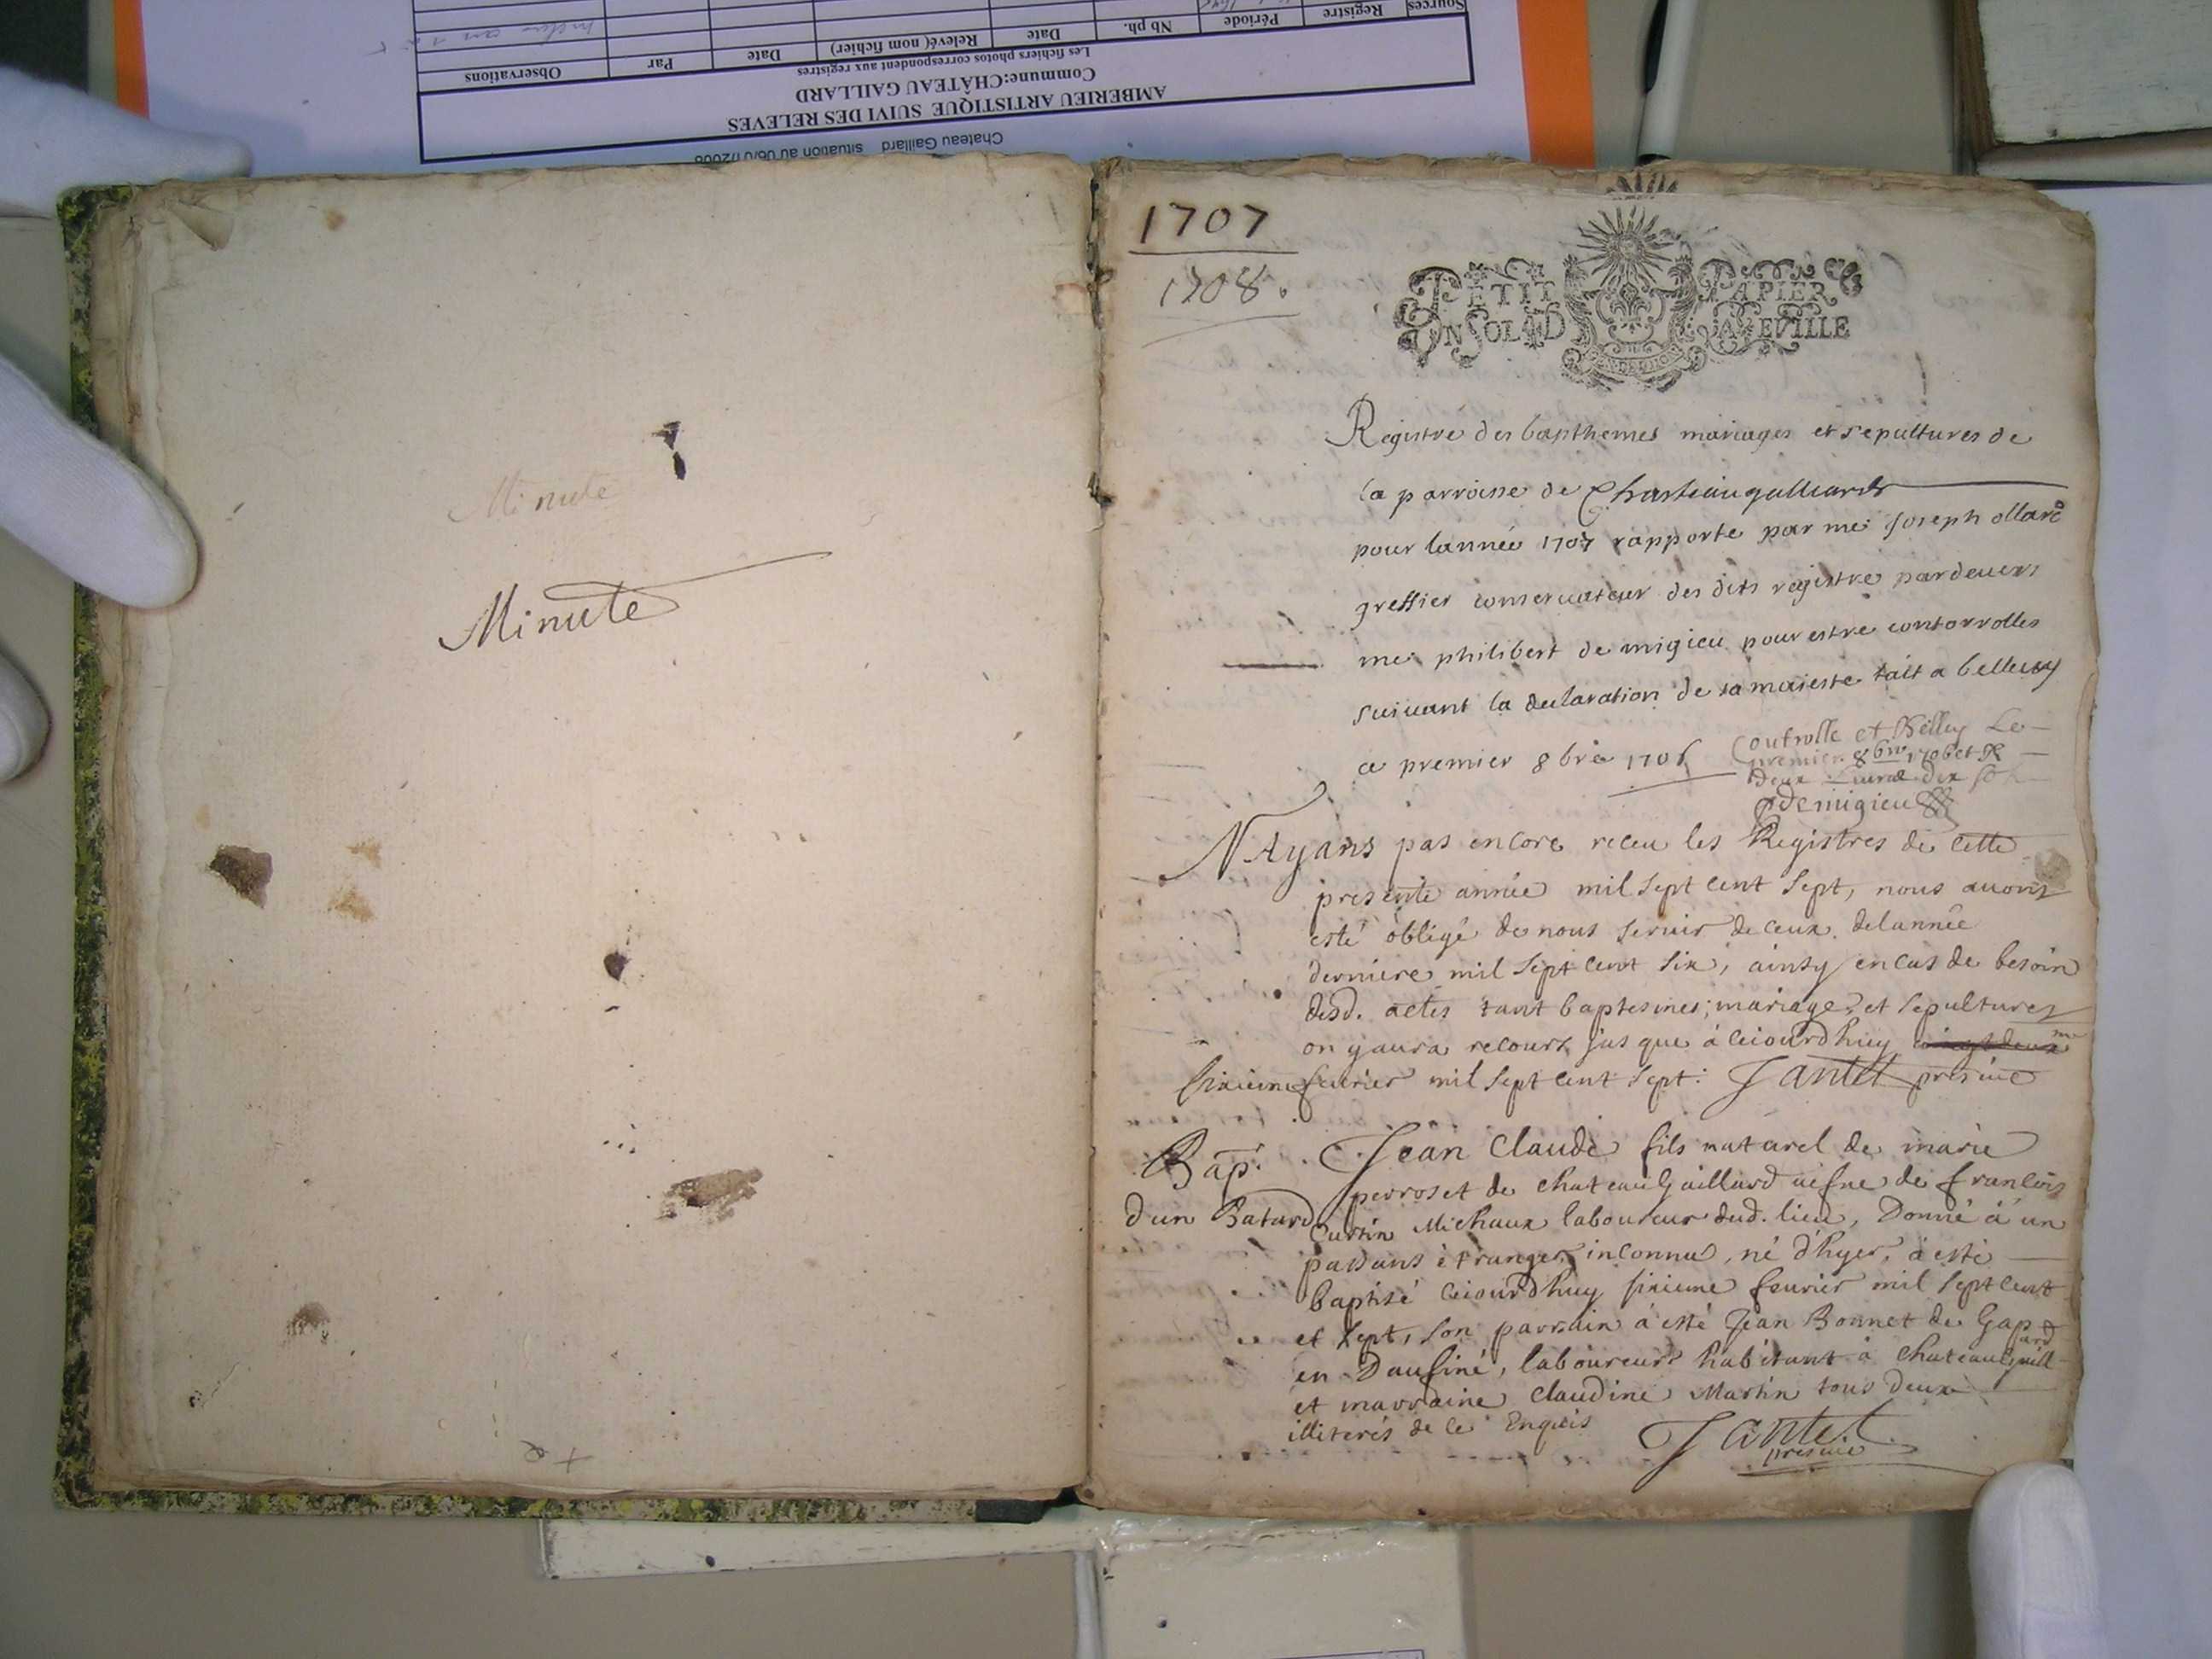 Chateau Gaillard situation au
AMBERIEU ARTISTIQUE SUIVI DES RELEVES
Commune:CHÂTEAU GAILLARD
Les fichiers photos correspondent aux registres
Sources Registre Période Nb ph. Date Relevé( nom fichier) Date Par Observations
Minute
Minute
1707
1708.
PETIT PAPIER
UN SOL LA FEVILLE
Registre des bapthemes mariages et sepultures de
la parroisse de Chasteaugalliard
pour lannée 1707 rapporte par me Joseph ollard
greffier conservateur des dits registre pardevers
me philibert de migieu pour estre contorrolles
suivant la declaration de sa maieste fait a belley
ce premier 8bre 1706
Controlle et Belley Le
premier 8bre 1706 et R
Deux Livres dix
Demigieu
N'Ayans pas encore receu les Registres de cette
presente année mil sept cent sept, nous avons
esté obligé de nous servir de ceux de lannée
derniere mil sept cent six, ainsy en cas de besoin
desd. actes tant baptesmes, mariage, et sepultures
on y aura recours jusque à ceiourdhuy
sixieme feuvrier mil sept cent sept: Jantet
Bap.
d'un Batard
Jean Claude fils naturel de marie
perroset de chateau Gaillard de francois
Curtin Michaux laboureur dud. lieu, Donné à un
passant étranger inconnu, né d'hyer, à esté
baptisé ceiourdhuy sixieme feuvrier mil sept cent
et sept, son parrain à esté Jean Bonnet de Gap
en Daufiné, laboureur habitant à chateau Gaillard
et marraine Claudine Martin tous deux
illiterés de ce Enquis
Jantet